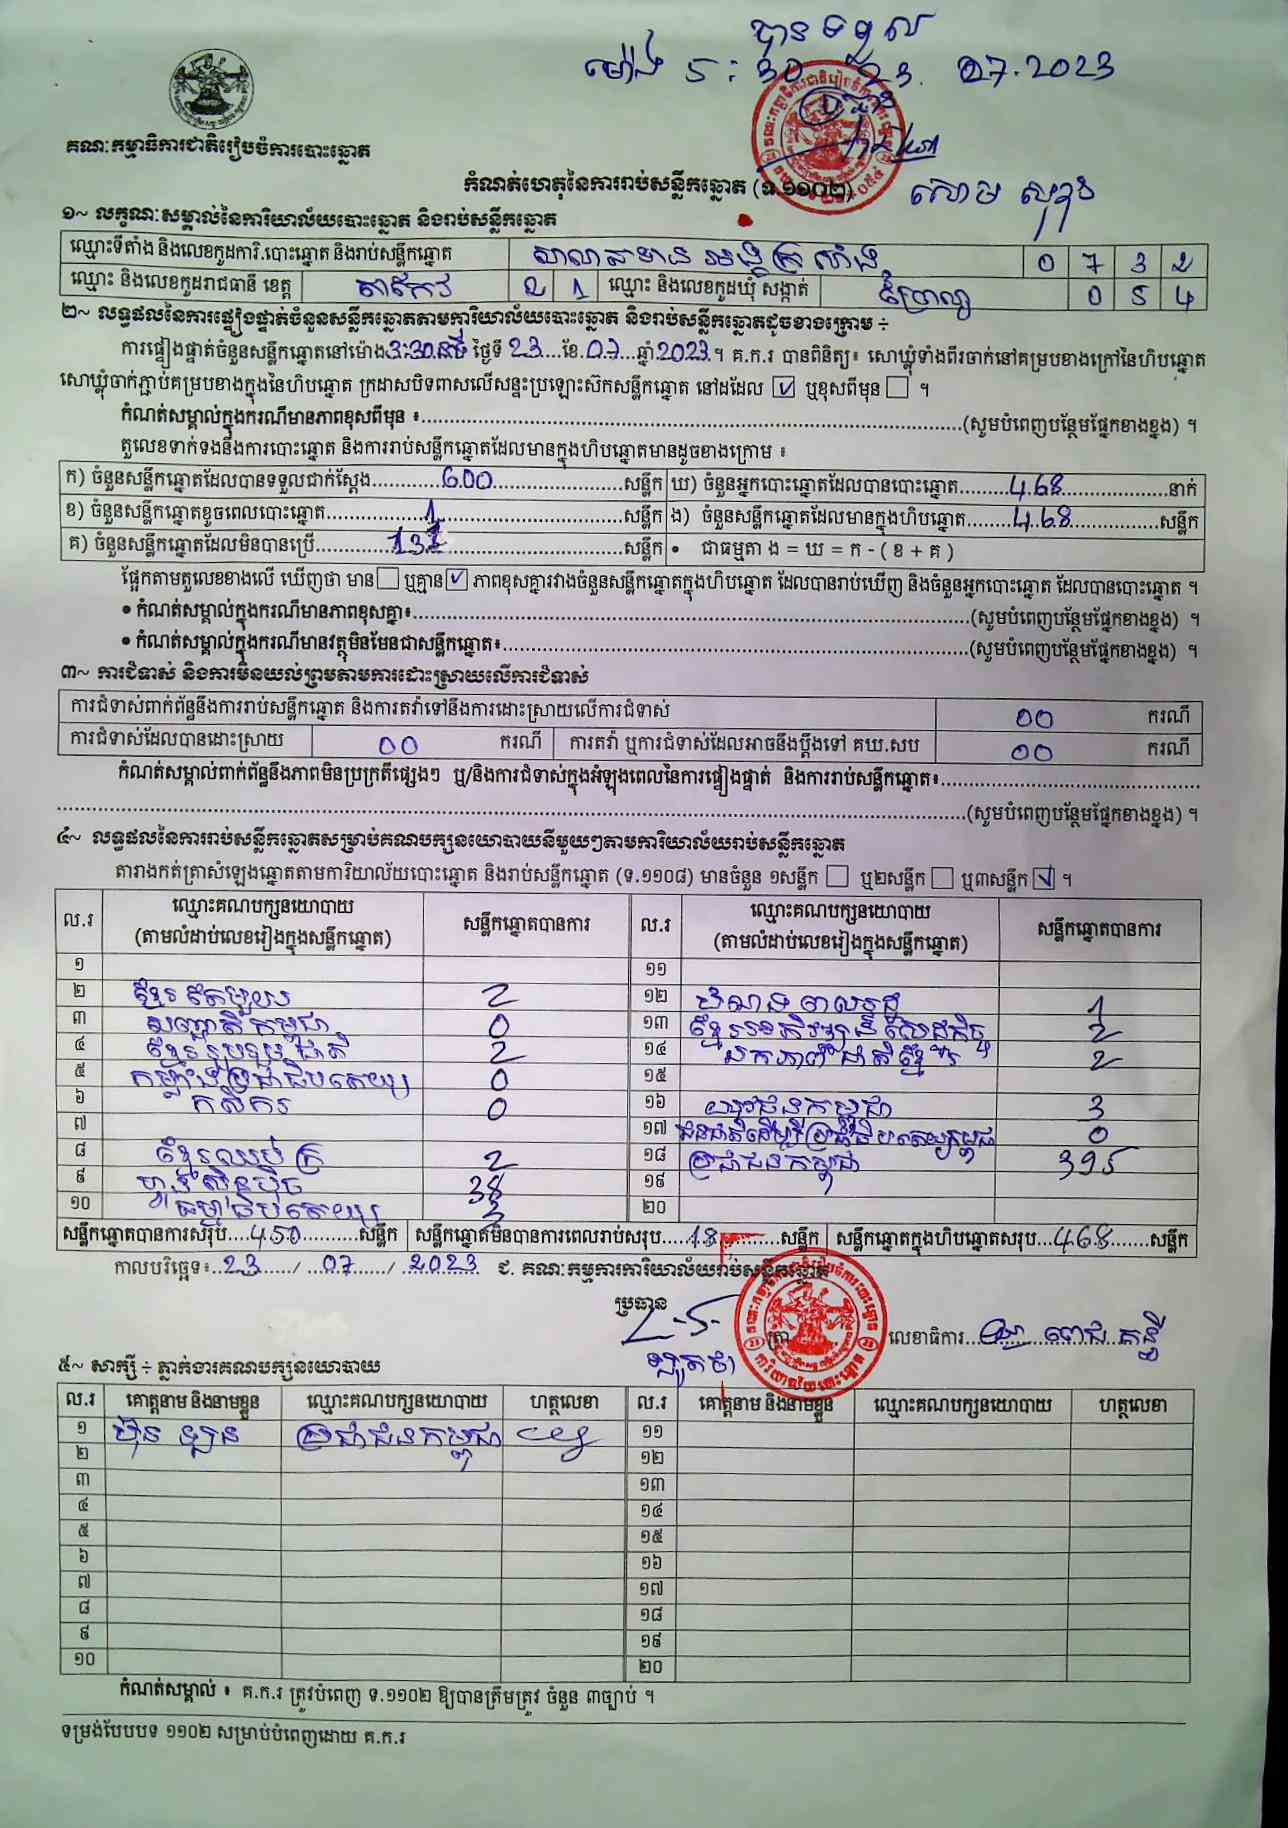 បានទទួល
ម៉ោង 5:30 23.07.2023
គណៈកម្មាធិការជាតិរៀបចំការបោះឆ្នោត
កំណត់ហេតុនៃការរាប់សន្លឹកឆ្នោត (ទ.១១០២)
១~ លក្ខណៈសម្គាល់នៃការិយាល័យបោះឆ្នោត និងរាប់សន្លឹកឆ្នោត
ឈ្មោះទីតាំង និងលេខកូដការិ.បោះឆ្នោត និងរាប់សន្លឹកឆ្នោត 0 7 3 2
ឈ្មោះ និងលេខកូដរាជធានី ខេត្ត តាកែវ 2 1 ឈ្មោះ និងលេខកូដឃុំ សង្កាត់ 0 5 4
២~ លទ្ធផលនៃការផ្ទៀងផ្ទាត់ចំនួនសន្លឹកឆ្នោតតាមការិយាល័យបោះឆ្នោត និងរាប់សន្លឹកឆ្នោតដូចខាងក្រោម ÷
ការផ្ទៀងផ្ទាត់ចំនួនសន្លឹកឆ្នោតនៅម៉ោង 3:30នាទី ថ្ងៃទី 23 ខែ 07 ឆ្នាំ 2023។ គ.ក.រ បានពិនិត្យ៖ សោឃ្លុំទាំងពីរចាក់នៅគម្របខាងក្រៅនៃហិបឆ្នោត
សោឃ្លុំចាក់ភ្ជាប់គម្របខាងក្នុងនៃហិបឆ្នោត ក្រដាសបិទពាសលើសន្ទះប្រឡោះស៊កសន្លឹកឆ្នោត នៅដដែល ☑ ឬខុសពីមុន ☐ ។
កំណត់សម្គាល់ក្នុងករណីមានភាពខុសពីមុន ៖ (សូមបំពេញបន្ថែមផ្នែកខាងខ្នង) ។
តួលេខទាក់ទងនឹងការបោះឆ្នោត និងការរាប់សន្លឹកឆ្នោតដែលមានក្នុងហិបឆ្នោតមានដូចខាងក្រោម ៖
ក) ចំនួនសន្លឹកឆ្នោតដែលបានទទួលជាក់ស្តែង 600 សន្លឹក ឃ) ចំនួនអ្នកបោះឆ្នោតដែលបានបោះឆ្នោត 468 នាក់
ខ) ចំនួនសន្លឹកឆ្នោតខូចពេលបោះឆ្នោត 1 សន្លឹក ង) ចំនួនសន្លឹកឆ្នោតដែលមានក្នុងហិបឆ្នោត 468 សន្លឹក
គ) ចំនួនសន្លឹកឆ្នោតដែលមិនបានប្រើ 131 សន្លឹក • ជាធម្មតា ង = ឃ = ក - ( ខ + គ )
ផ្អែកតាមតួលេខខាងលើ ឃើញថា មាន ☐ ឬគ្មាន ☑ ភាពខុសគ្នារវាងចំនួនសន្លឹកឆ្នោតក្នុងហិបឆ្នោត ដែលបានរាប់ឃើញ និងចំនួនអ្នកបោះឆ្នោត ដែលបានបោះឆ្នោត ។
• កំណត់សម្គាល់ក្នុងករណីមានភាពខុសគ្នា៖ (សូមបំពេញបន្ថែមផ្នែកខាងខ្នង) ។
• កំណត់សម្គាល់ក្នុងករណីមានវត្ថុមិនមែនជាសន្លឹកឆ្នោត៖ (សូមបំពេញបន្ថែមផ្នែកខាងខ្នង) ។
៣~ ការជំទាស់ និងការមិនយល់ព្រមតាមការដោះស្រាយលើការជំទាស់
ការជំទាស់ពាក់ព័ន្ធនឹងការរាប់សន្លឹកឆ្នោត និងការតវ៉ាទៅនឹងការដោះស្រាយលើការជំទាស់ 00 ករណី
ការជំទាស់ដែលបានដោះស្រាយ 00 ករណី ការតវ៉ា ឬការជំទាស់ដែលអាចនឹងប្តឹងទៅ គឃ.សប 00 ករណី
កំណត់សម្គាល់ពាក់ព័ន្ធនឹងភាពមិនប្រក្រតីផ្សេងៗ ឬ/និងការជំទាស់ក្នុងអំឡុងពេលនៃការផ្ទៀងផ្ទាត់ និងការរាប់សន្លឹកឆ្នោត៖
(សូមបំពេញបន្ថែមផ្នែកខាងខ្នង) ។
៤~ លទ្ធផលនៃការរាប់សន្លឹកឆ្នោតសម្រាប់គណបក្សនយោបាយនីមួយៗតាមការិយាល័យរាប់សន្លឹកឆ្នោត
តារាងកត់ត្រាសំឡេងឆ្នោតតាមការិយាល័យបោះឆ្នោត និងរាប់សន្លឹកឆ្នោត (ទ.១១០៨) មានចំនួន ១សន្លឹក ☐ ឬ២សន្លឹក ☐ ឬ៣សន្លឹក ☑ ។
ល.រ ឈ្មោះគណបក្សនយោបាយ (តាមលំដាប់លេខរៀងក្នុងសន្លឹកឆ្នោត) សន្លឹកឆ្នោតបានការ ល.រ ឈ្មោះគណបក្សនយោបាយ (តាមលំដាប់លេខរៀងក្នុងសន្លឹកឆ្នោត) សន្លឹកឆ្នោតបានការ
១ ១១
២ ខ្មែរតែមួយ 2 ១២ 1
៣ សញ្ជាតិកម្ពុជា 0 ១៣ ខ្មែរអភិវឌ្ឍន៍សេដ្ឋកិច្ច 2
៤ ខ្មែររួបរួមជាតិ 2 ១៤ ឯកភាពជាតិខ្មែរ 2
៥ កម្លាំងប្រជាធិបតេយ្យ 0 ១៥
៦ កសិករ 0 ១៦ យុវជនកម្ពុជា 3
៧ ១៧ ជនជាតិដើម្បីប្រជាធិបតេយ្យកម្ពុជា 0
៨ ខ្មែរឈប់ក្រ 2 ១៨ ប្រជាជនកម្ពុជា 395
៩ ហ៊្វុនស៊ិនប៉ិច 38 ១៩
១០ ធម្មាធិបតេយ្យ 3 ២០
សន្លឹកឆ្នោតបានការសរុប 450 សន្លឹក សន្លឹកឆ្នោតមិនបានការពេលរាប់សរុប 18 សន្លឹក សន្លឹកឆ្នោតក្នុងហិបឆ្នោតសរុប 468 សន្លឹក
កាលបរិច្ឆេទ៖ 23 / 07 / 2023 ជ. គណៈកម្មការការិយាល័យរាប់សន្លឹកឆ្នោត
ប្រធាន
ត្រា លេខាធិការ
៥~ សាក្សី ÷ ភ្នាក់ងារគណបក្សនយោបាយ
ល.រ គោត្តនាម និងនាមខ្លួន ឈ្មោះគណបក្សនយោបាយ ហត្ថលេខា ល.រ គោត្តនាម និងនាមខ្លួន ឈ្មោះគណបក្សនយោបាយ ហត្ថលេខា
១ ប្រជាជនកម្ពុជា ១១
២ ១២
៣ ១៣
៤ ១៤
៥ ១៥
៦ ១៦
៧ ១៧
៨ ១៨
៩ ១៩
១០ ២០
កំណត់សម្គាល់ ៖ គ.ក.រ ត្រូវបំពេញ ទ.១១០២ ឱ្យបានត្រឹមត្រូវ ចំនួន ៣ច្បាប់ ។
ទម្រង់បែបបទ ១១០២ សម្រាប់បំពេញដោយ គ.ក.រ